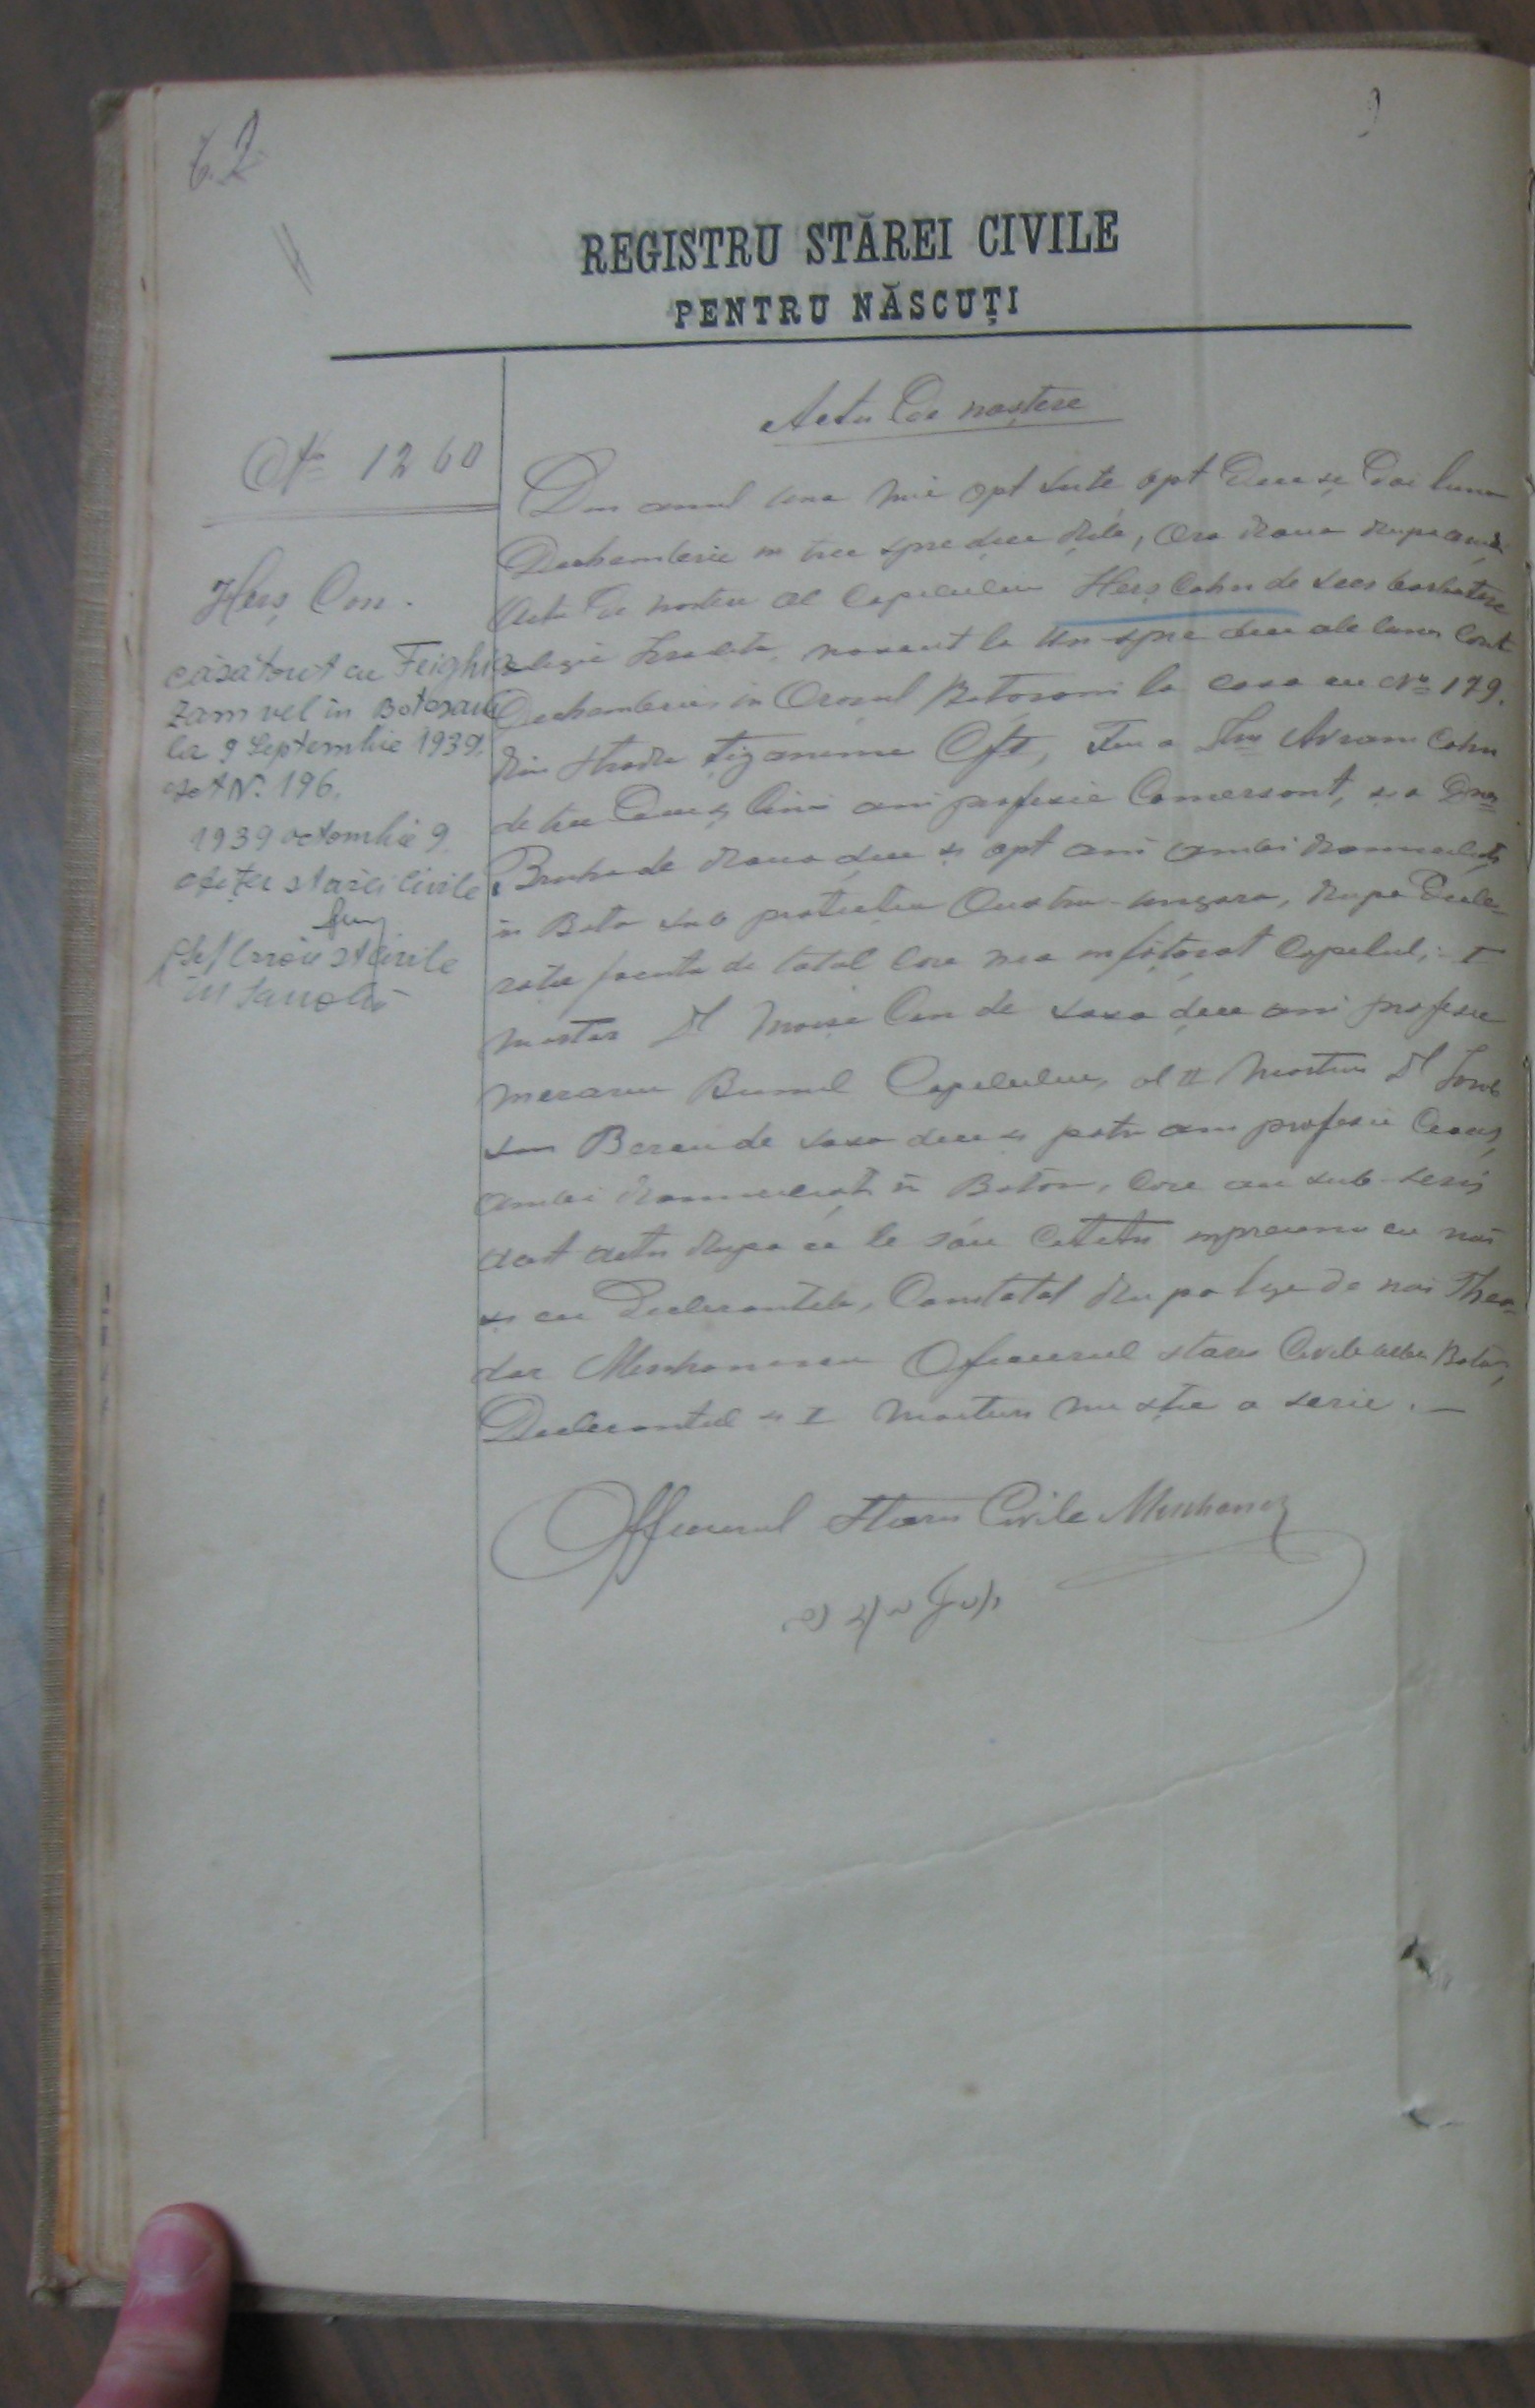 62
REGISTRU STĂREI CIVILE
PENTRU NĂSCUȚI
Actu de nastere
No 1260
Herș Con.
căsătorit cu Feighia
Zamvel în Botoșani
la 9 Septembrie 1939.
act N. 196.
1939 octombrie 9
ofițer stărei civile
Din anul una mie opt sute opt dece și doi luna
Dechembrie in trei spre dece dile, ora doua dupe amedi
Actu de nastere al Copilului Herș Cohn de secs barbatesc
religie Israelita, nascut la un-spre-dece ale lunei Cort
Dechembrie in Orasul Botosani la casa cu No 179.
din strada țiganime Cft, fiu a Dlui Avram Cohn
de trei deci și cinci ani profesie Comersant, și a Dnei
Bruha de doua deci și opt ani ambii domiciliați
in Boto sub protectia Austro-ungara, dupe decla-
ratia facuta de tatal care ne-a infătosat Copilul; I
martor Dl Moise Con de sasa deci ani profesie
merariu Bunul Copilului, al II martur Dl
Beren de sasa deci și patru ani profesie Ceauș,
ambii domiciliați in Botos, care au sub-scris
acest actu dupa ce le sau citetu impreuna cu noi
și cu Declarantele, Constatat dupa lege de noi Theo-
dor Ofițerul starei Civile urbei Botos,
Declarantul și I martur nu știe a scrie.—
Offițerul Starei Civile